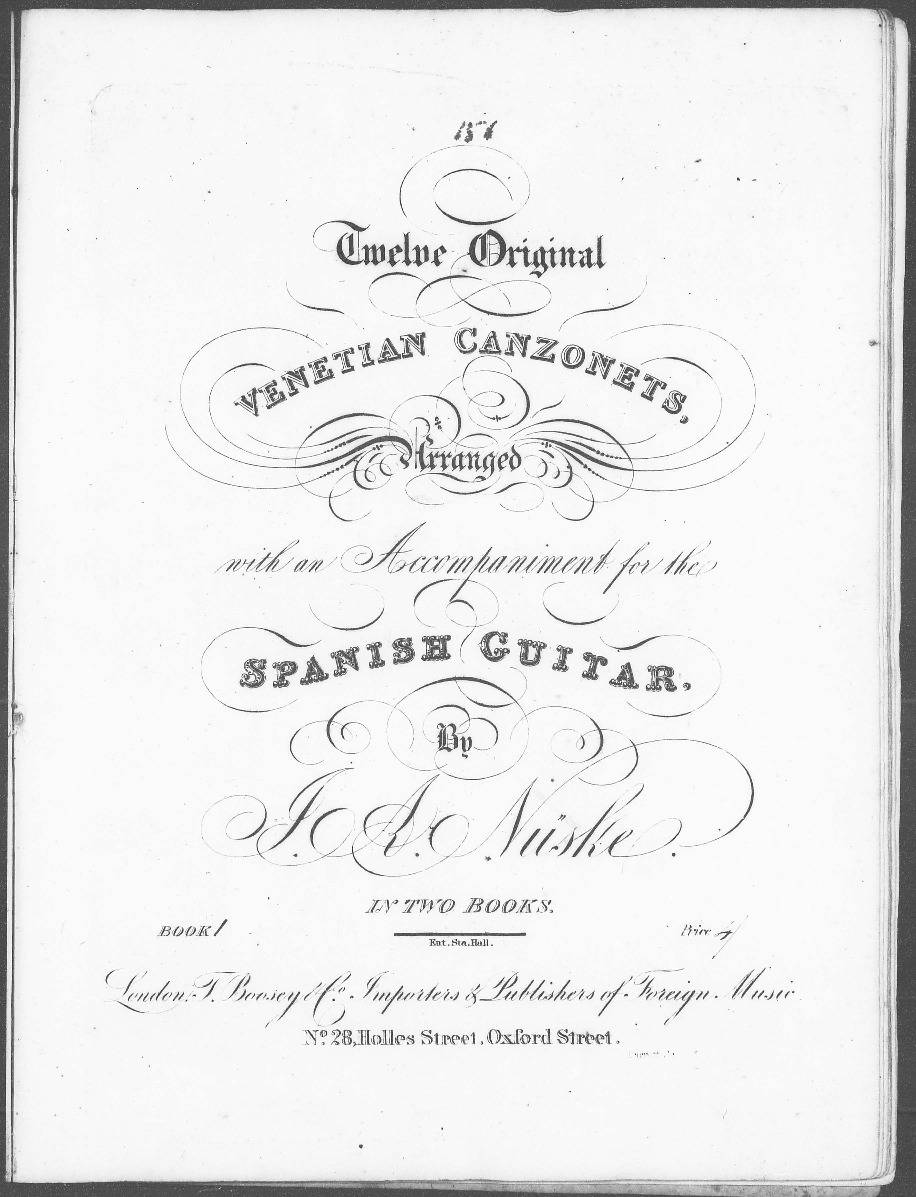 Twelve Original
VENETIAN CANZONETS,
Arranged
with an Accompaniment for the
SPANISH GUITAR.
By
J. A. Nüske.
IN TWO BOOKS.
BOOK 1
Price 4/
Ent. Sta. Hall.
London, T. Boosey & Co. Importers & Publishers of Foreign Music
No. 28, Holles Street, Oxford Street.